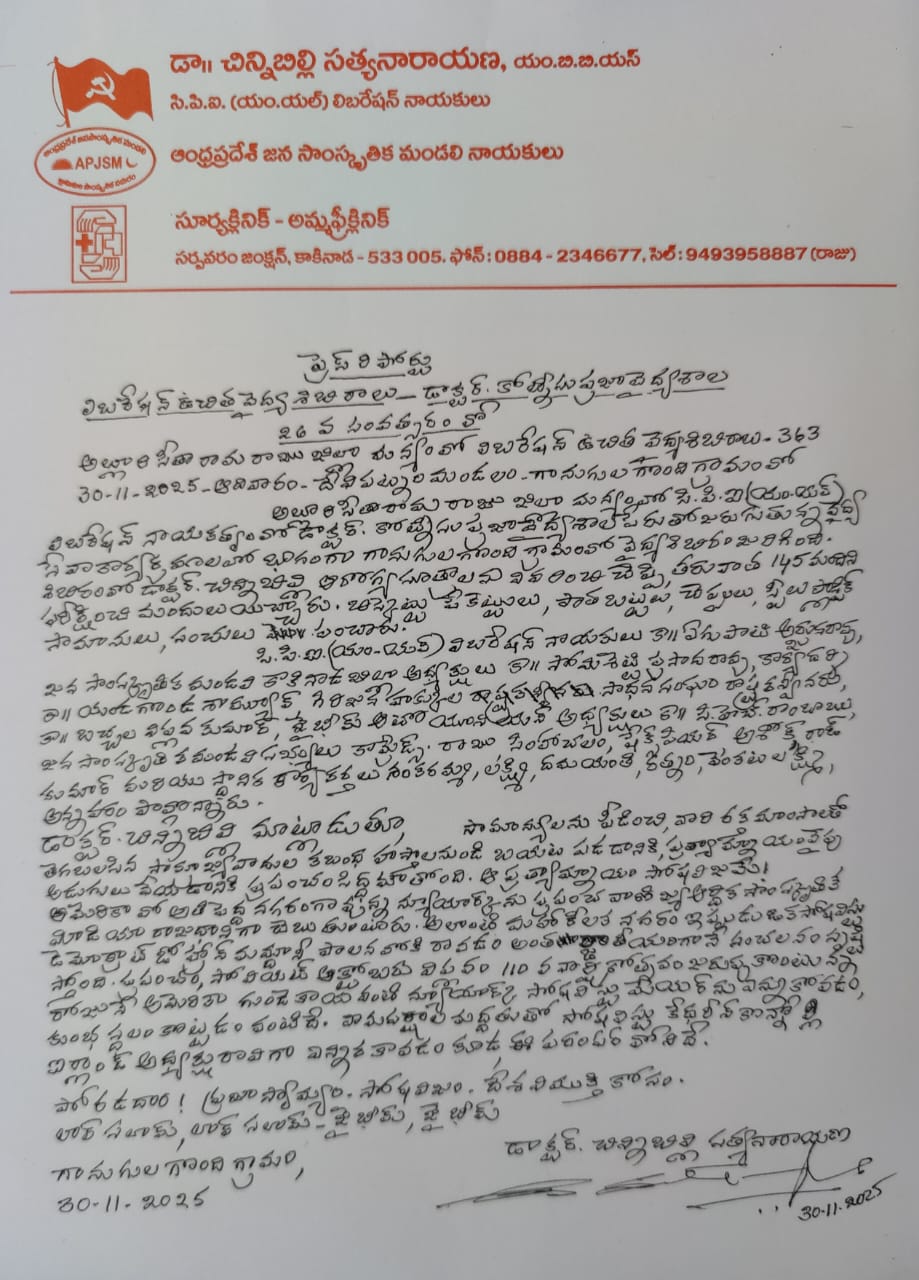 డా॥ చిన్నిబిల్లి సత్యనారాయణ, యం.బి.బి.యస్
సి.పి.ఐ. (యం.యల్) లిబరేషన్ నాయకులు
ఆంధ్రప్రదేశ్ జన సాంస్కృతిక మండలి నాయకులు
ఆంధ్రప్రదేశ్ జనసాంస్కృతిక మండలి
APJSM
సూర్యక్లినిక్ - అమ్మఫ్రీక్లినిక్
సర్పవరం జంక్షన్, కాకినాడ - 533 005. ఫోన్ : 0884 - 2346677, సెల్ : 9493958887 (రాజు)
ప్రెస్ రిపోర్టు
లిబరేషన్ ఉచిత వైద్య శిబిరాలు - డాక్టర్. కోట్నీసు ప్రజావైద్యశాల
26 వ సంవత్సరంలో
అల్లూరి సీతారామరాజు జిల్లా మన్యంలో లిబరేషన్ ఉచిత వైద్యశిబిరాలు - 363
30-11-2025 - ఆదివారం - దేవీపట్నం మండలం - గానుగుల గొంది గ్రామంలో
అల్లూరి సీతారామ రాజు జిల్లా మన్యంలో సి.పి.ఐ (యం-యల్)
లిబరేషన్ నాయకత్వంలో డాక్టర్. కోట్నీసు ప్రజావైద్యశాల పేరుతో జరుగుతున్న వైద్య
సేవా కార్యక్రమాలలో భాగంగా గానుగులగొంది గ్రామంలో వైద్యశిబిరం జరిగింది.
శిబిరంలో డాక్టర్. చిన్నిబిల్లి ఆరోగ్య సూత్రాలను వివరించి చెప్పి, తరువాత 145 మందిని
పరీక్షించి మందులు యిచ్చారు. బిస్కెట్లు పేకెట్టులు, పాత బట్టలు, చెప్పులు, స్టీలు ప్లాస్టిక్
సామానులు, సంచులు పంచారు.
సి.పి.ఐ.(యం-యల్) లిబరేషన్ నాయకులు కా॥ ఏగుపాటి అర్జునరావు,
జన సాంస్కృతిక మండలి కాకినాడ జిల్లా అధ్యక్షులు కా॥ సోమశెట్టి ప్రసాదరావు, కార్యదర్శి
కా॥ యండగొండ, గిరిజన హక్కుల సాధన సంఘం రాష్ట్ర కన్వీనరు,
కా॥ బచ్చల విప్లవ కుమార్, జైభీమ్ ఆటో యూనియన్ అధ్యక్షులు కా॥ సి.హెచ్. రాంబాబు,
జన సాంస్కృతిక మండలి సభ్యులు కామ్రేడ్స్. రాజు సింహాచలం, షేక్స్‌పియర్ అశోక్, రాజ్
కుమార్ మరియు స్థానిక కార్యకర్తలు శంకరమ్మ, లక్ష్మి, దమయంతి, రత్నం, వెంకటలక్ష్మి,
అన్నవరం పాల్గొన్నారు.
డాక్టర్. చిన్నిబిల్లి మాట్లాడుతూ, సామాన్యులను పీడించి, వారి రక్తమాంసాలతో
తెగబలసిన సామ్రాజ్యవాదుల కబంధ హస్తాలనుండి బయట పడడానికి, ప్రత్యామ్నాయంవైపు
అడుగులు వేయడానికి ప్రపంచం సిద్ధమౌతోంది. ఆ ప్రత్యామ్నాయం సోషలిజమే!
అమెరికా లో అతిపెద్ద నగరంగా వున్న న్యూయార్క్‌ను ప్రపంచ వాణిజ్య ఆర్థిక సాంస్కృతిక
మీడియా రాజధానిగా చెబుతుంటారు. అలాంటి మహోన్నత నగరం ఇప్పుడు ఒక సోషలిస్టు
డెమోక్రాట్ జోహ్రాన్ మమ్దానీ పాలనలోకి రావడం సంచలనం సృష్టి
స్తోంది. ప్రపంచ, సోవియట్ అక్టోబరు విప్లవం 110 వ వార్షికోత్సవం జరుపుకొంటున్న
రోజునే అమెరికా గుండెకాయ వంటి న్యూయార్క్ సోషలిస్టు మేయర్‌ను ఎన్నుకోవడం,
కుంభస్థలం కొట్టడం వంటిదే. వామపక్షాల మద్దతుతో సోషలిస్టు కేథరీన్ కొన్నోల్లీ
ఐర్లాండ్ అధ్యక్షురాలిగా ఎన్నిక కావడం కూడ, ఈ పరంపర లోనిదే.
పోరాడదాం! ప్రజాస్వామ్యం. సోషలిజం. దేశవిముక్తి కోసం.
లాల్ సలామ్, లాల్ సలామ్ - జైభీమ్, జై భీమ్
గానుగుల గొంది గ్రామం,
30-11-2025
డాక్టర్. చిన్నిబిల్లి సత్యనారాయణ
30-11-2025